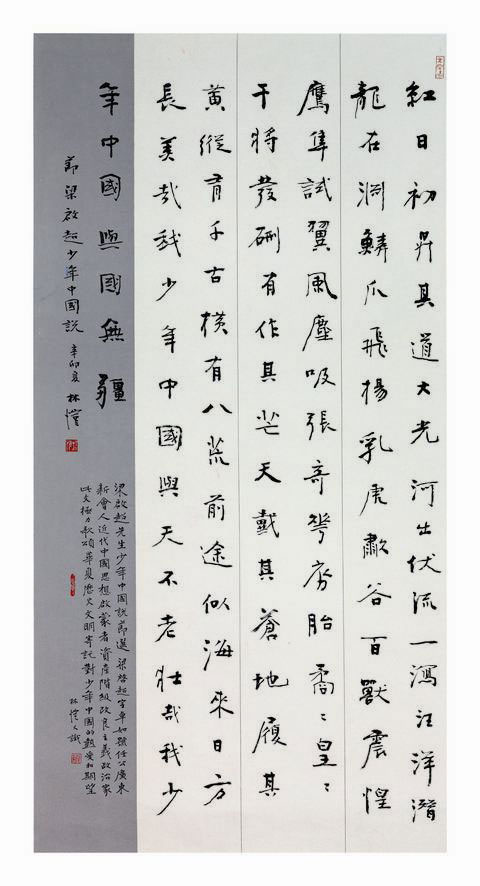 紅日初昇其道大光河出伏流一瀉汪洋潛
龍在淵鱗爪飛揚乳虎歗谷百獸震惶
鷹隼試翼風塵吸張奇花初胎矞〻皇〻
干將發硎有作其芒天戴其蒼地履其
黃縱有千古橫有八荒前途似海來日方
長美哉我少年中國與天不老壯哉我少
年中國與國無疆
節梁啟超少年中國說 辛卯夏 林愷
梁啟超先生少年中國說節選 梁啟超字卓如號任公廣東
新會人近代中國思想啟蒙者資產階級改良主義政治家
此文極力歌頌華夏歷史文明寄託對少年中國的熱愛和期望
林愷又識